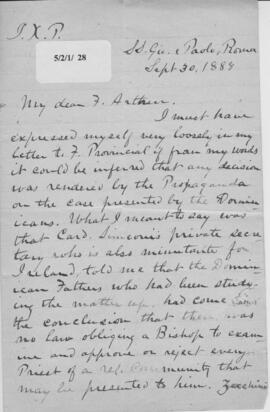 J. X. P.
5/2/1/ 28
SS. Gio. e Paolo, Roma
Sept 30, 1889
My dear F. Arthur.
I must have
expressed myself very loosely in my
letter to F. Provincial if from my words
it could be inferred that any decision
was rendered by the Propaganda
on the case presented by the Domin-
icans. What I meant to say was
that Card. Simeoni's private secre-
tary who is also minutante for
Ireland, told me that the Domin-
ican Fathers who had been study-
ing the matter up, had come to
the conclusion that there was
no law obliging a Bishop to exam-
ine and approve or reject every
Priest of a rel. Community that
may be presented to him.